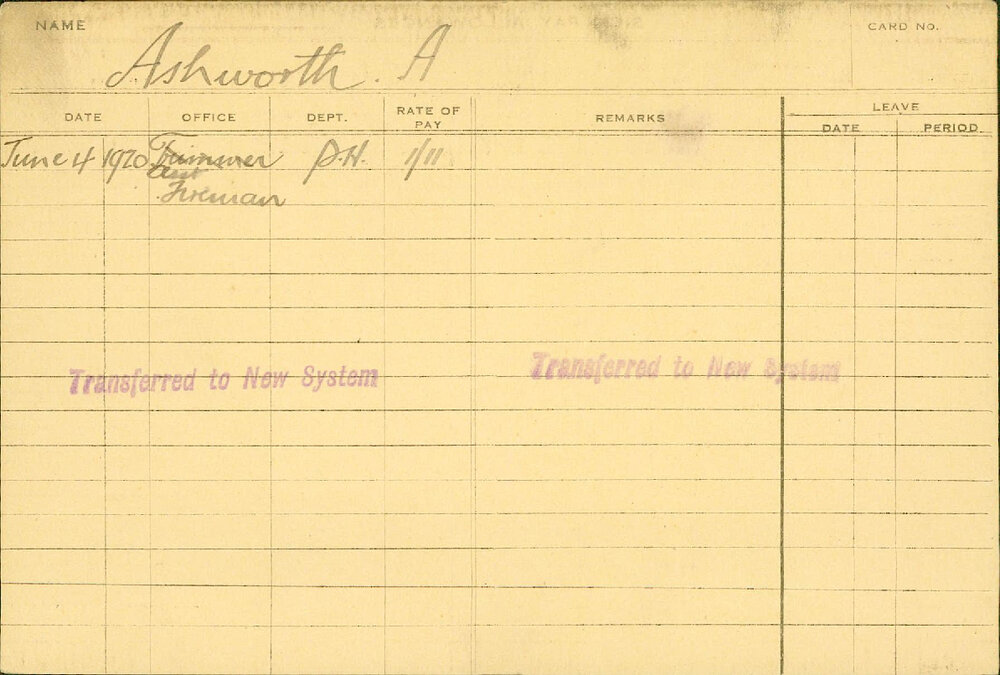 NAME
CARD NO.
Ashworth. A
DATE OFFICE DEPT. RATE OF PAY REMARKS LEAVE
DATE PERIOD
June 4 1920 Trimmer P.H. 1/11
Fireman
Transferred to New System Transferred to New System